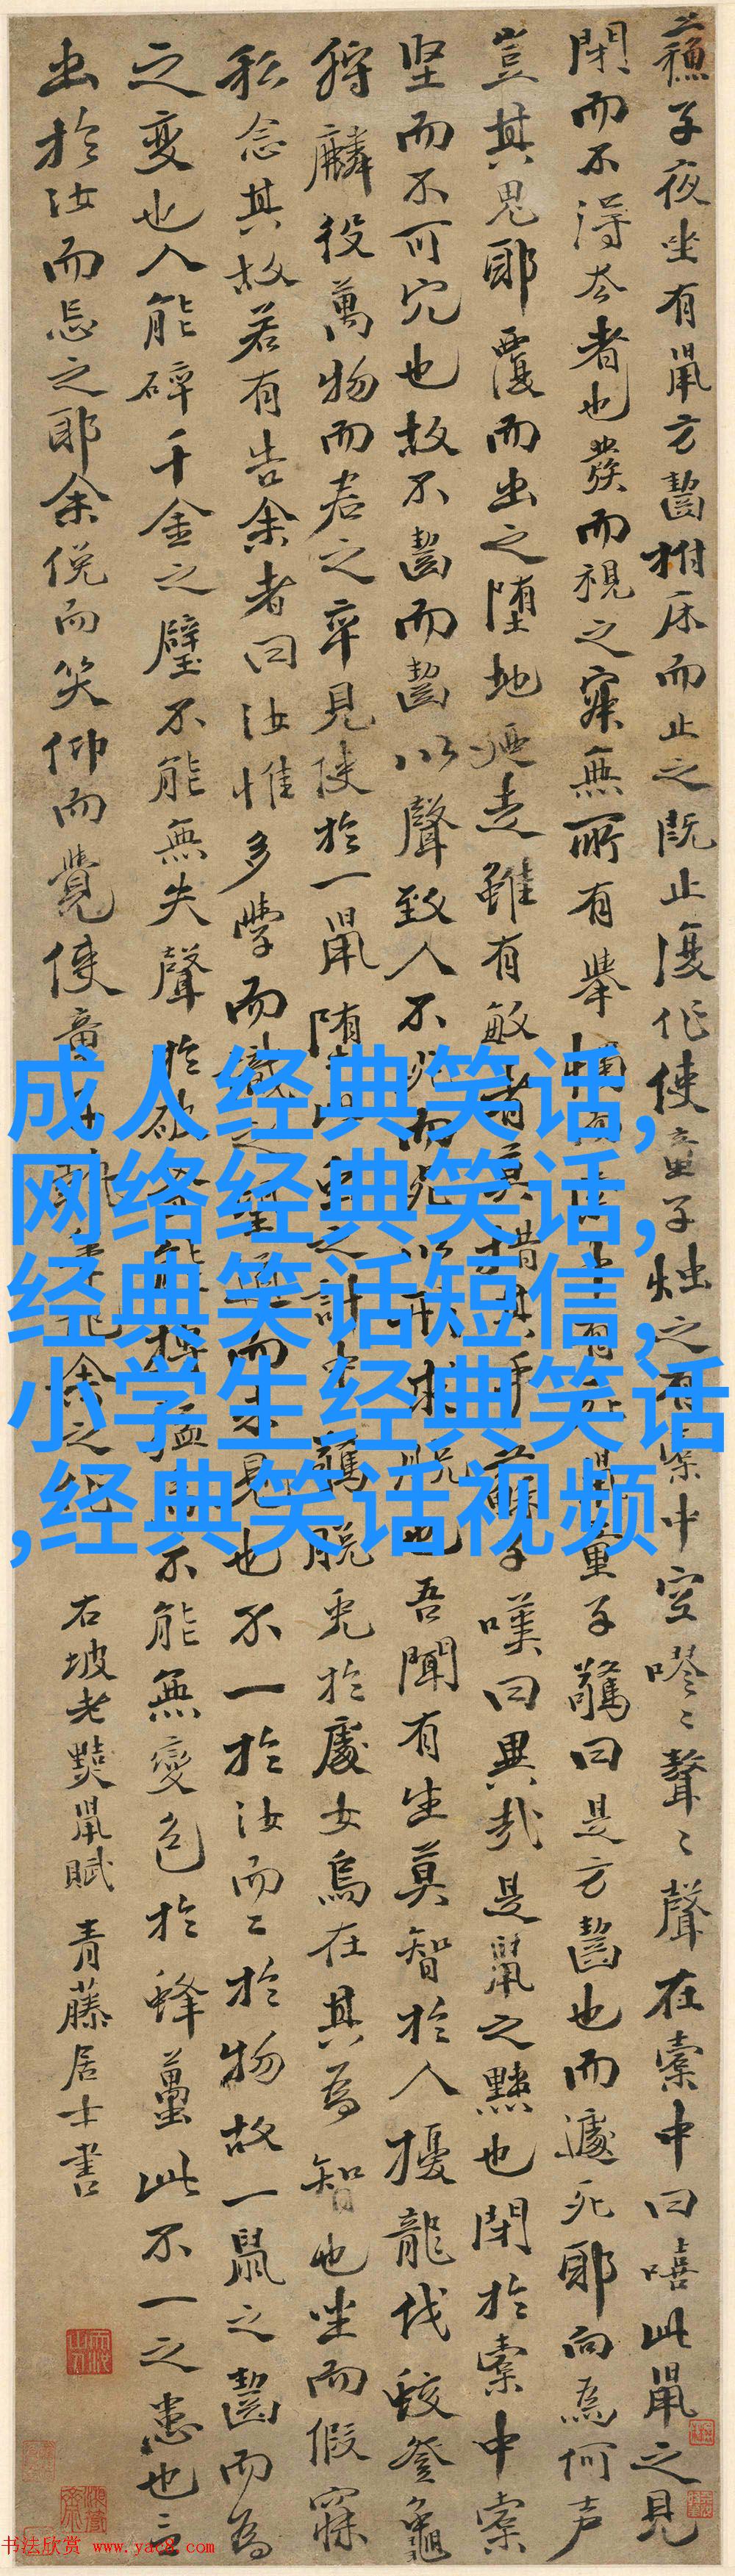 蘇子夜坐有鼠方齧拊床而止之既止復作使童子燭之有橐中空嘐〻聱〻聲在橐中曰嘻此鼠之見
閉而不得去者也發而視之寂無所有舉燭而索中有死鼠童子驚曰是方齧也而遽死耶向為何声
豈其鬼耶覆而出之墮地廼走雖有敏者莫措其手蘇子嘆曰異哉是鼠之黠也閉於橐中橐
坚而不可穴也故不齧而齧以聲致人不死而死以形求脱也吾聞有生莫智於人擾龍伐蛟登龜
狩麟役萬物而君之卒見使於一鼠墮此蟲之計中驚脱兎於處女烏在其為智也坐而假寐
私念其故若有告余者曰汝惟多學而識之望道而未見也不一於汝而二於物故一鼠之齧而為
之變也人能碎千金之璧不能無失聲於破釜能搏猛虎不能無變色於蜂蠆此不一之患也言
出於汝而忘之耶余俛而笑仰而覺使童子執筆記余之 右坡老黠鼠賦青藤居士書
成人经典笑话,
网络经典笑话,
经典笑话短信,
小学生经典笑话
,经典笑话视频
书法欣赏 www.yac8.com